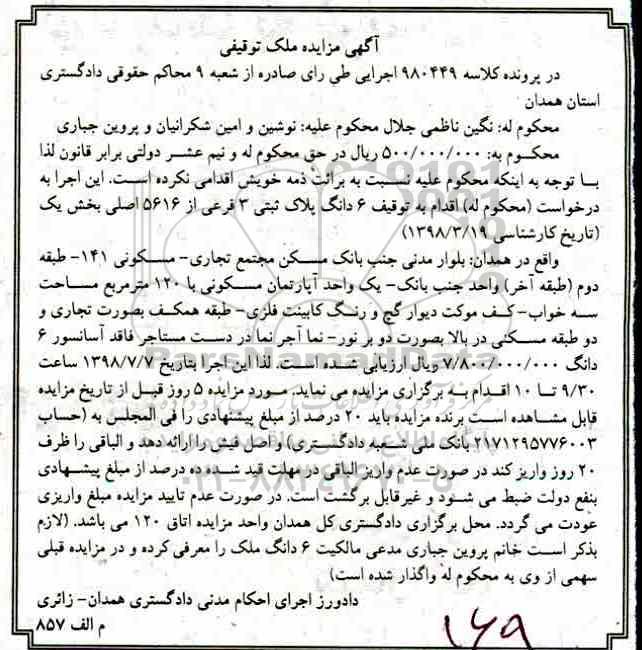 آگهی مزایده ملک توقیفی
در پرونده کلاسه ۹۸۰۴۴۹ اجرایی طی رای صادره از شعبه ۹ محاکم حقوقی دادگستری
استان همدان
محکوم له: نگین ناظمی جلال محکوم علیه: نوشین و امین شکرانیان و پروین جباری
محکوم به: ۵۰۰/۰۰۰/۰۰۰ ریال در حق محکوم له و نیم عشر دولتی برابر قانون لذا
با توجه به اینکه محکوم علیه نسبت به برائت ذمه خویش اقدامی نکرده است. این اجرا به
درخواست (محکوم له) اقدام به توقیف ۶ دانگ پلاک ثبتی ۳ فرعی از ۵۶۱۶ اصلی بخش یک
(تاریخ کارشناسی ۱۳۹۸/۳/۱۹)
واقع در همدان: بلوار مدنی جنب بانک مسکن مجتمع تجاری- مسکونی ۱۴۱- طبقه
دوم (طبقه آخر) واحد جنب بانک- یک واحد آپارتمان مسکونی با ۱۲۰ مترمربع مساحت
سه خواب- کف موکت دیوار گچ و رنگ کابینت فلزی- طبقه همکف بصورت تجاری و
دو طبقه مسکنی در بالا بصورت دو بر نور- نما آجر نما در دست مستاجر فاقد آسانسور ۶
دانگ ۷/۸۰۰/۰۰۰/۰۰۰ ریال ارزیابی شده است. لذا این اجرا بتاریخ ۱۳۹۸/۷/۷ ساعت
۹/۳۰ تا ۱۰ اقدام به برگزاری مزایده می نماید. مورد مزایده ۵ روز قبل از تاریخ مزایده
قابل مشاهده است برنده مزایده باید ۲۰ درصد از مبلغ پیشنهادی را فی المجلس به (حساب
۲۱۷۱۲۹۵۷۷۶۰۰۳ بانک ملی شعبه دادگستری) و اصل فیش را ارائه دهد و الباقی را ظرف
۲۰ روز واریز کند در صورت عدم واریز الباقی در مهلت قید شده ده درصد از مبلغ پیشنهادی
بنفع دولت ضبط می شود و غیرقابل برگشت است. در صورت عدم تایید مزایده مبلغ واریزی
عودت می گردد. محل برگزاری دادگستری کل همدان واحد مزایده اتاق ۱۲۰ می باشد. (لازم
بذکر است خانم پروین جباری مدعی مالکیت ۶ دانگ ملک را معرفی کرده و در مزایده قبلی
سهمی از وی به محکوم له واگذار شده است)
دادورز اجرای احکام مدنی دادگستری همدان- زائری
م الف ۸۵۷
۱۶۹
ParsNamadData
۰۲۱-۸۸۳۴۹۶۷۰-۵